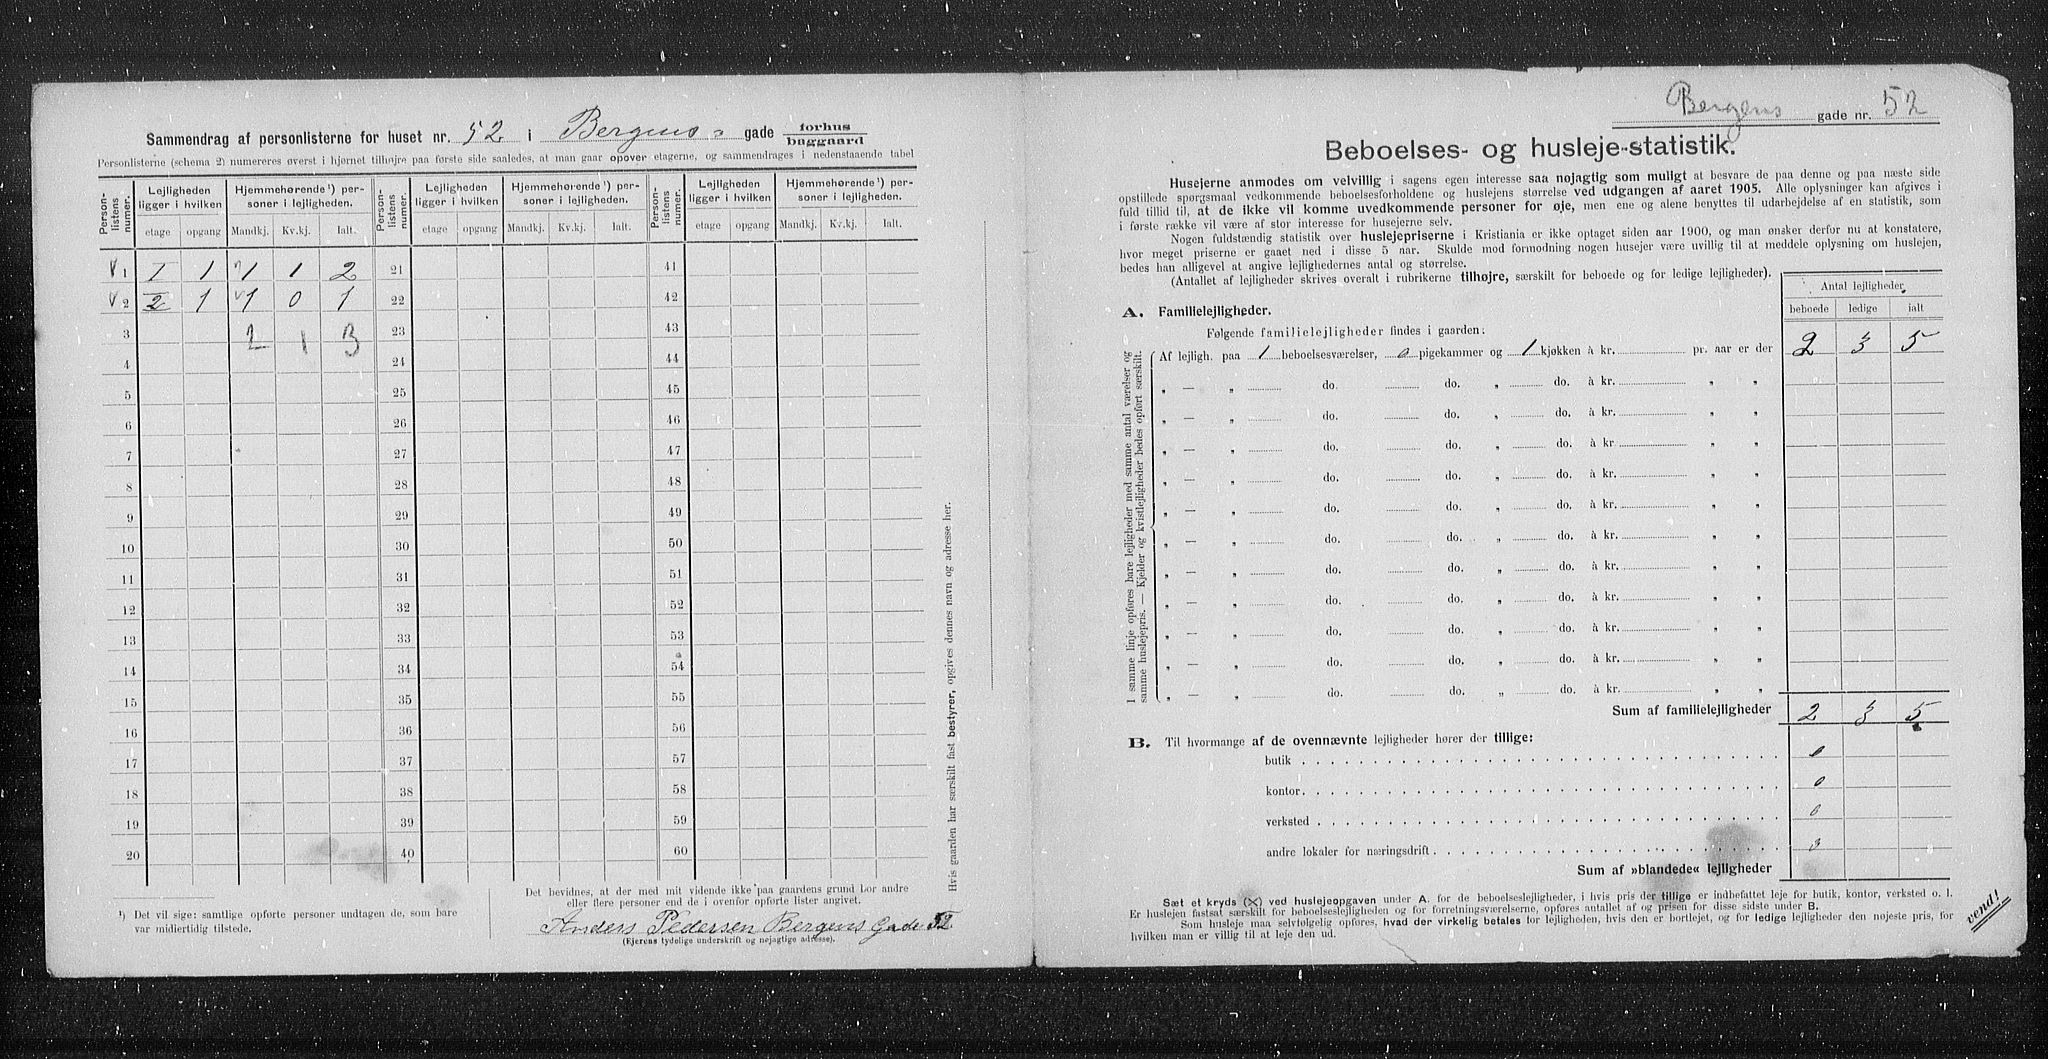 Sammendrag af personlisterne for huset nr. 52 i Bergens gade forhus
baggaard
Personlisterne (schema 2) numereres øverst i hjørnet tilhøjre paa første side saaledes, at man gaar opover etagerne, og sammendrages i nedenstaaende tabel
Person-listens numer. Lejligheden ligger i hvilken Hjemmehørende ¹) personer i lejligheden. Person-listens numer. Lejligheden ligger i hvilken Hjemmehørende ¹) personer i lejligheden. Person-listens numer. Lejligheden ligger i hvilken Hjemmehørende ¹) personer i lejligheden.
etage opgang Mandkj. Kv.kj. Ialt. etage opgang Mandkj. Kv.kj. Ialt. etage opgang Mandkj. Kv.kj. Ialt.
1 I 1 1 1 2 21 41
2 2 1 1 0 1 22 42
3 2 1 3 23 43
4 24 44
5 25 45
6 26 46
7 27 47
8 28 48
9 29 49
10 30 50
11 31 51
12 32 52
13 33 53
14 34 54
15 35 55
16 36 56
17 37 57
18 38 58
19 39 59
20 40 60
¹) Det vil sige: samtlige opførte personer undtagen de, som bare
var midlertidig tilstede.
Det bevidnes, at der med mit vidende ikke paa gaardens grund bor andre
eller flere personer end de i ovenfor opførte lister angivet.
Anders Pedersen Bergens Gade 52.
(Ejerens tydelige underskrift og nøjagtige adresse).
Hvis gaarden har særskilt fast bestyrer, opgives dennes navn og adresse her.
Bergens gade nr. 52
Beboelses- og husleje-statistik.
Husejerne anmodes om velvillig i sagens egen interesse saa nojagtig som muligt at besvare de paa denne og paa næste side
opstillede spørgsmaal vedkommende beboelsesforholdene og huslejens størrelse ved udgangen af aaret 1905. Alle oplysninger kan afgives i
fuld tillid til, at de ikke vil komme uvedkommende personer for øje, men ene og alene benyttes til udarbejdelse af en statistik, som
i første række vil være af stor interesse for husejerne selv.
Nogen fuldstændig statistik over huslejepriserne i Kristiania er ikke optaget siden aar 1900, og man ønsker derfor nu at konstatere,
hvor meget priserne er gaaet ned i disse 5 aar. Skulde mod formodning nogen husejer være uvillig til at meddele oplysning om huslejen,
bedes han alligevel at angive lejlighedernes antal og størrelse.
(Antallet af lejligheder skrives overalt i rubrikerne tilhøjre, særskilt for beboede og for ledige lejligheder).
Antal lejligheder
beboede ledige ialt
A. Familielejligheder.
Følgende familielejligheder findes i gaarden:
I samme linje opføres bare lejligheder med samme antal værelser og
samme huslejepris. — Kjelder og kvistlejligheder bedes opført særskilt.
Af lejligh. paa 1 beboelsesværelser, 0 pigekammer og 1 kjøkken à kr. pr. aar er der 2 3 5
„ — „ do. do. „ do. à kr. „ „
„ — „ do. do. „ do. à kr. „ „
„ — „ do. do. „ do. à kr „ „
„ — „ do. do. „ do. à kr. „ „
„ — „ do. do. „ do. à kr. „ „
„ — „ do. do. „ do. à kr. „ „
„ — „ do. do. „ do. à kr. „ „
„ — „ do. do. „ do. à kr. „ „
„ — „ do. do. „ do. à kr. „ „
„ — „ do. do. „ do. à kr. „ „
„ — „ do. do. „ do. à kr. „ „
Sum af familielejligheder 2 3 5
B. Til hvormange af de ovennævnte lejligheder hører der tillige:
butik 0
kontor 0
verksted 0
andre lokaler for næringsdrift 0
Sum af »blandede« lejligheder
Sæt et kryds (×) ved huslejeopgaven under A. for de beboelseslejligheder, i hvis pris der tillige er indbefattet leje for butik, kontor, verksted o. l.
Er huslejen fastsat særskilt for beboelseslejligheden og for forretningsværelserne, opføres antallet af og prisen for disse sidste under B.
Som husleje maa selvfølgelig opføres, hvad der virkelig betales for lejligheden, hvis den er bortlejet, og for ledige lejligheder den nøjeste pris, for
hvilken man er villig til at leje den ud.
vend!